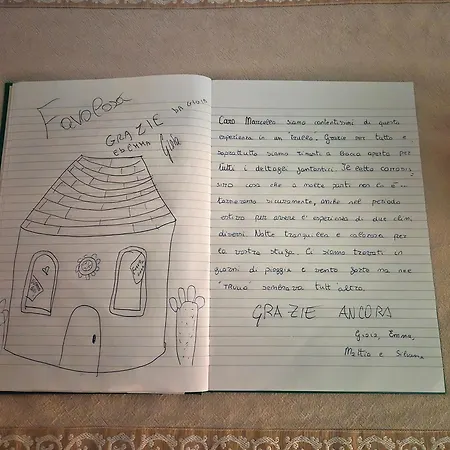 Favolosa
GRAZIE DA GIOIA
Gioia
Caro Marcello siamo contentissimi di questa
esperienza in un trullo. Grazie per tutto e
soprattutto siamo rimasti a bocca aperta per
tutti i dettagli fantastici. Il letto comodis
simo cosa che a molte parti non lo è...
torneremo sicuramente, anche nel periodo
estivo per avere l'esperienza di due climi
diversi. Notte tranquilla e calorosa per
la vostra stufa. Ci siamo trovati in
giorni di pioggia e vento forte ma nel
trullo sembrava tutt'altro.
GRAZIE ANCORA
Gioia, Emma,
Mattia e Silvana